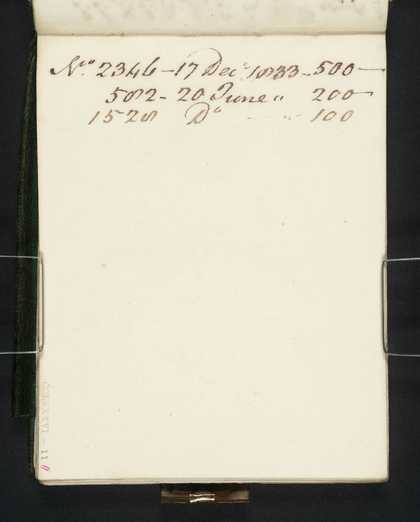 No. 2346 - 17 Decr. 1833 - 500 -
582 - 20 June " 200 -
1528 Do - " 100